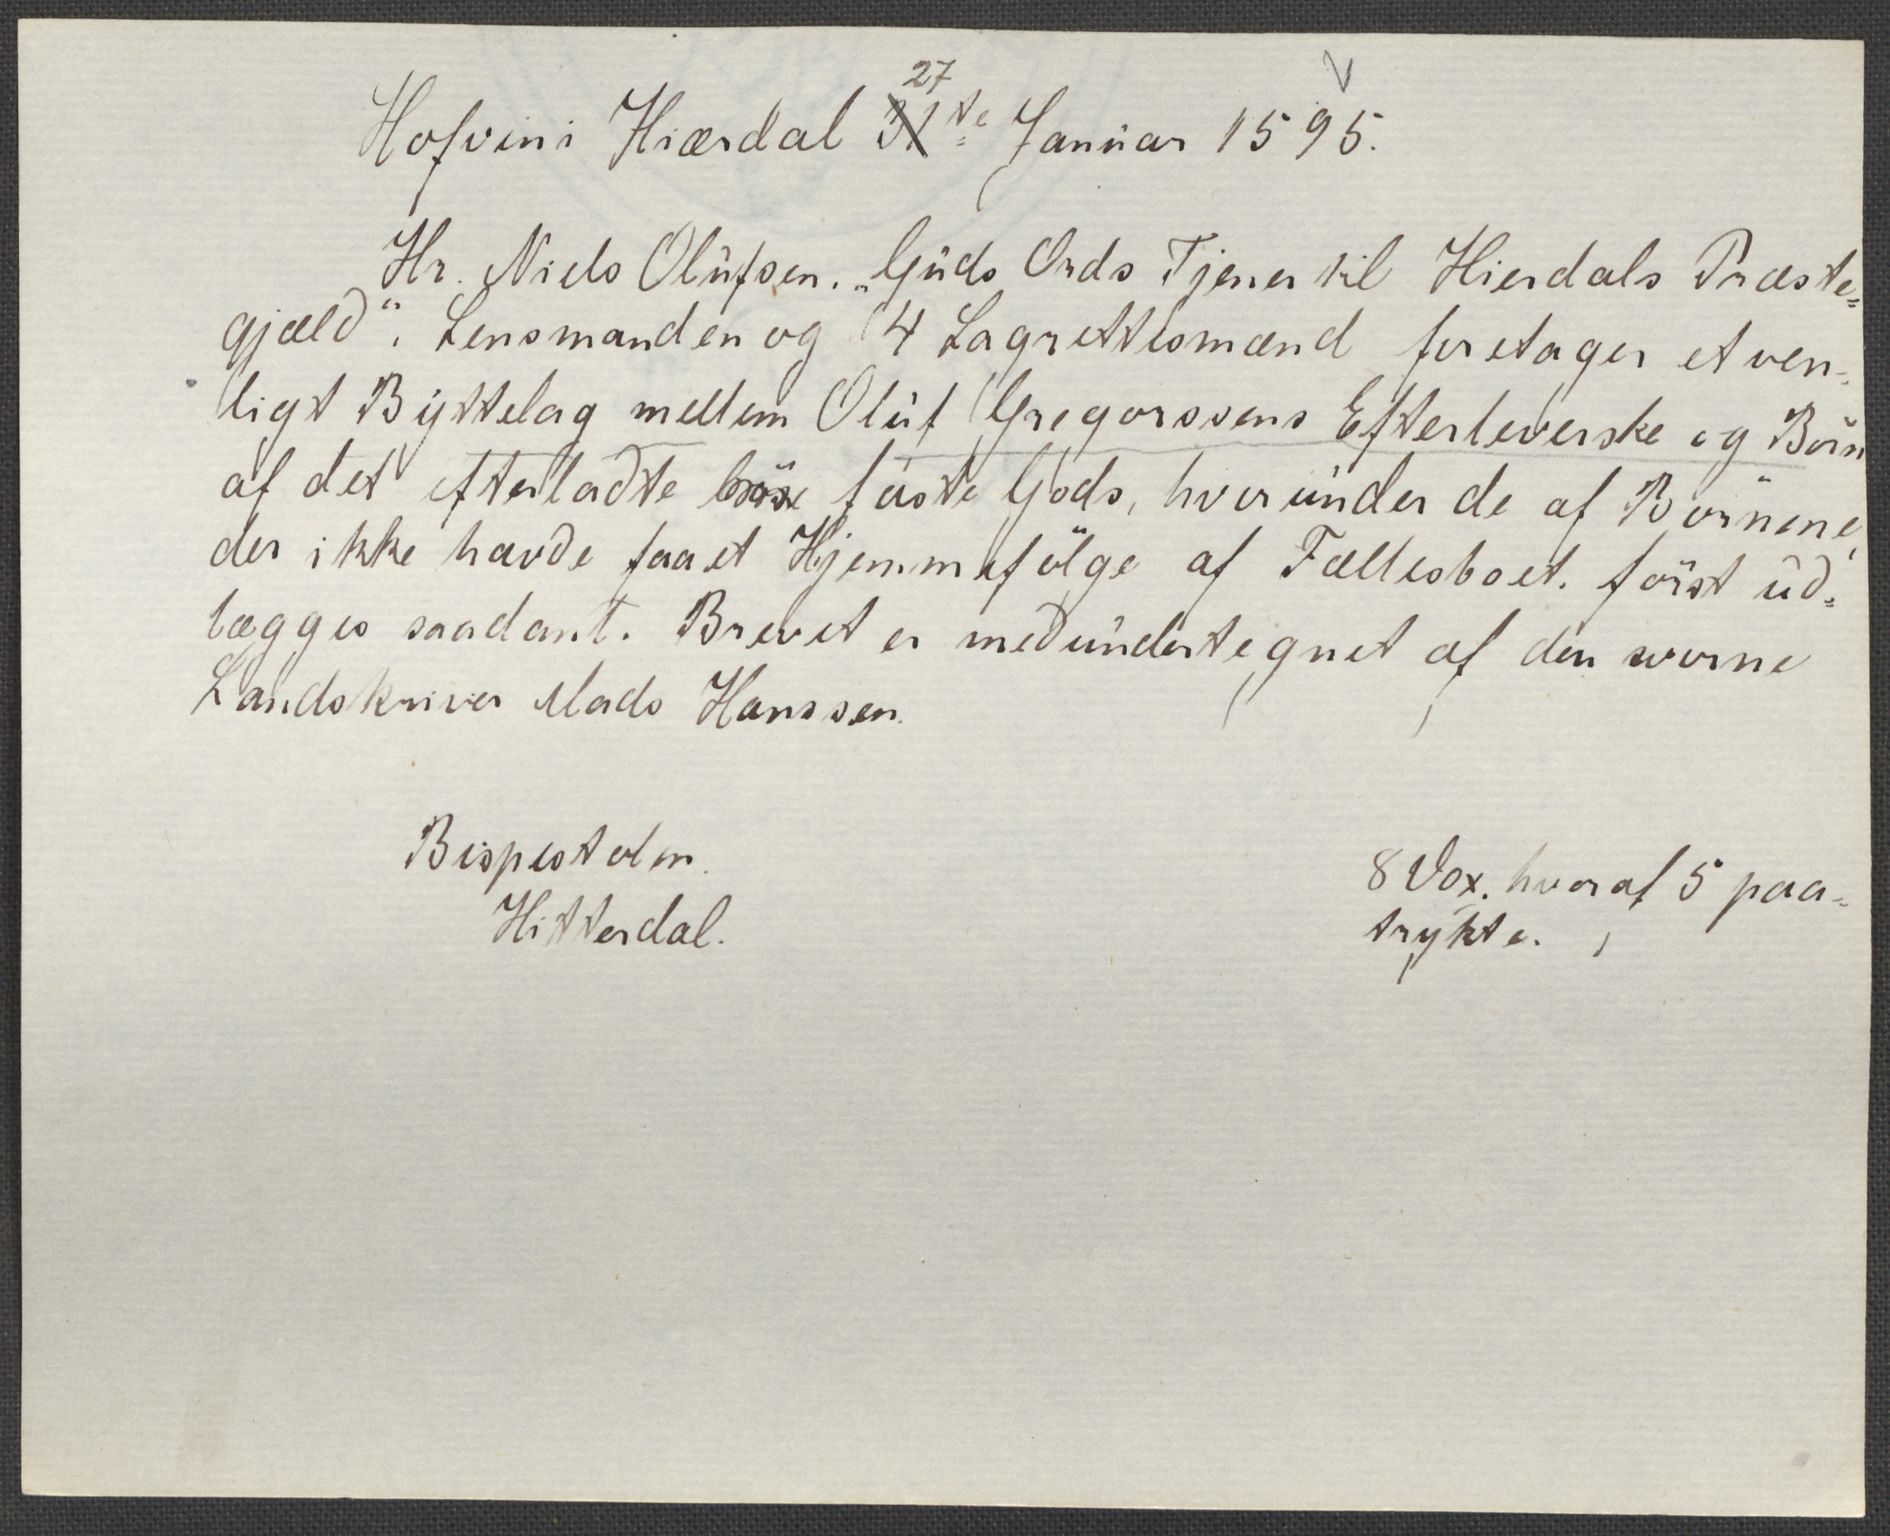 Hofvin i Hiærdal 27te Januar 1595.
Hr. Niels Olüfsen. „Güds Ords Tjener til Hierdals Præste=
gjæld“. Lensmanden og 4 Lagrettesmænd foretager et ven-
ligt Byttelag mellem Olüf Gregorssens Efterleverske og Börn
af det efterladte faste Gods, hvoründer de af Börnene,
der ikke havde faaet Hjemmefölge af Fællesboet. först üd=
lægges saadant. Brevet er medündertegnet af den svorne
Landskriver Mads Hanssen.
Bispestolen.
Hitterdal.
8 Vox. hvoraf 5 paa-
trykte.